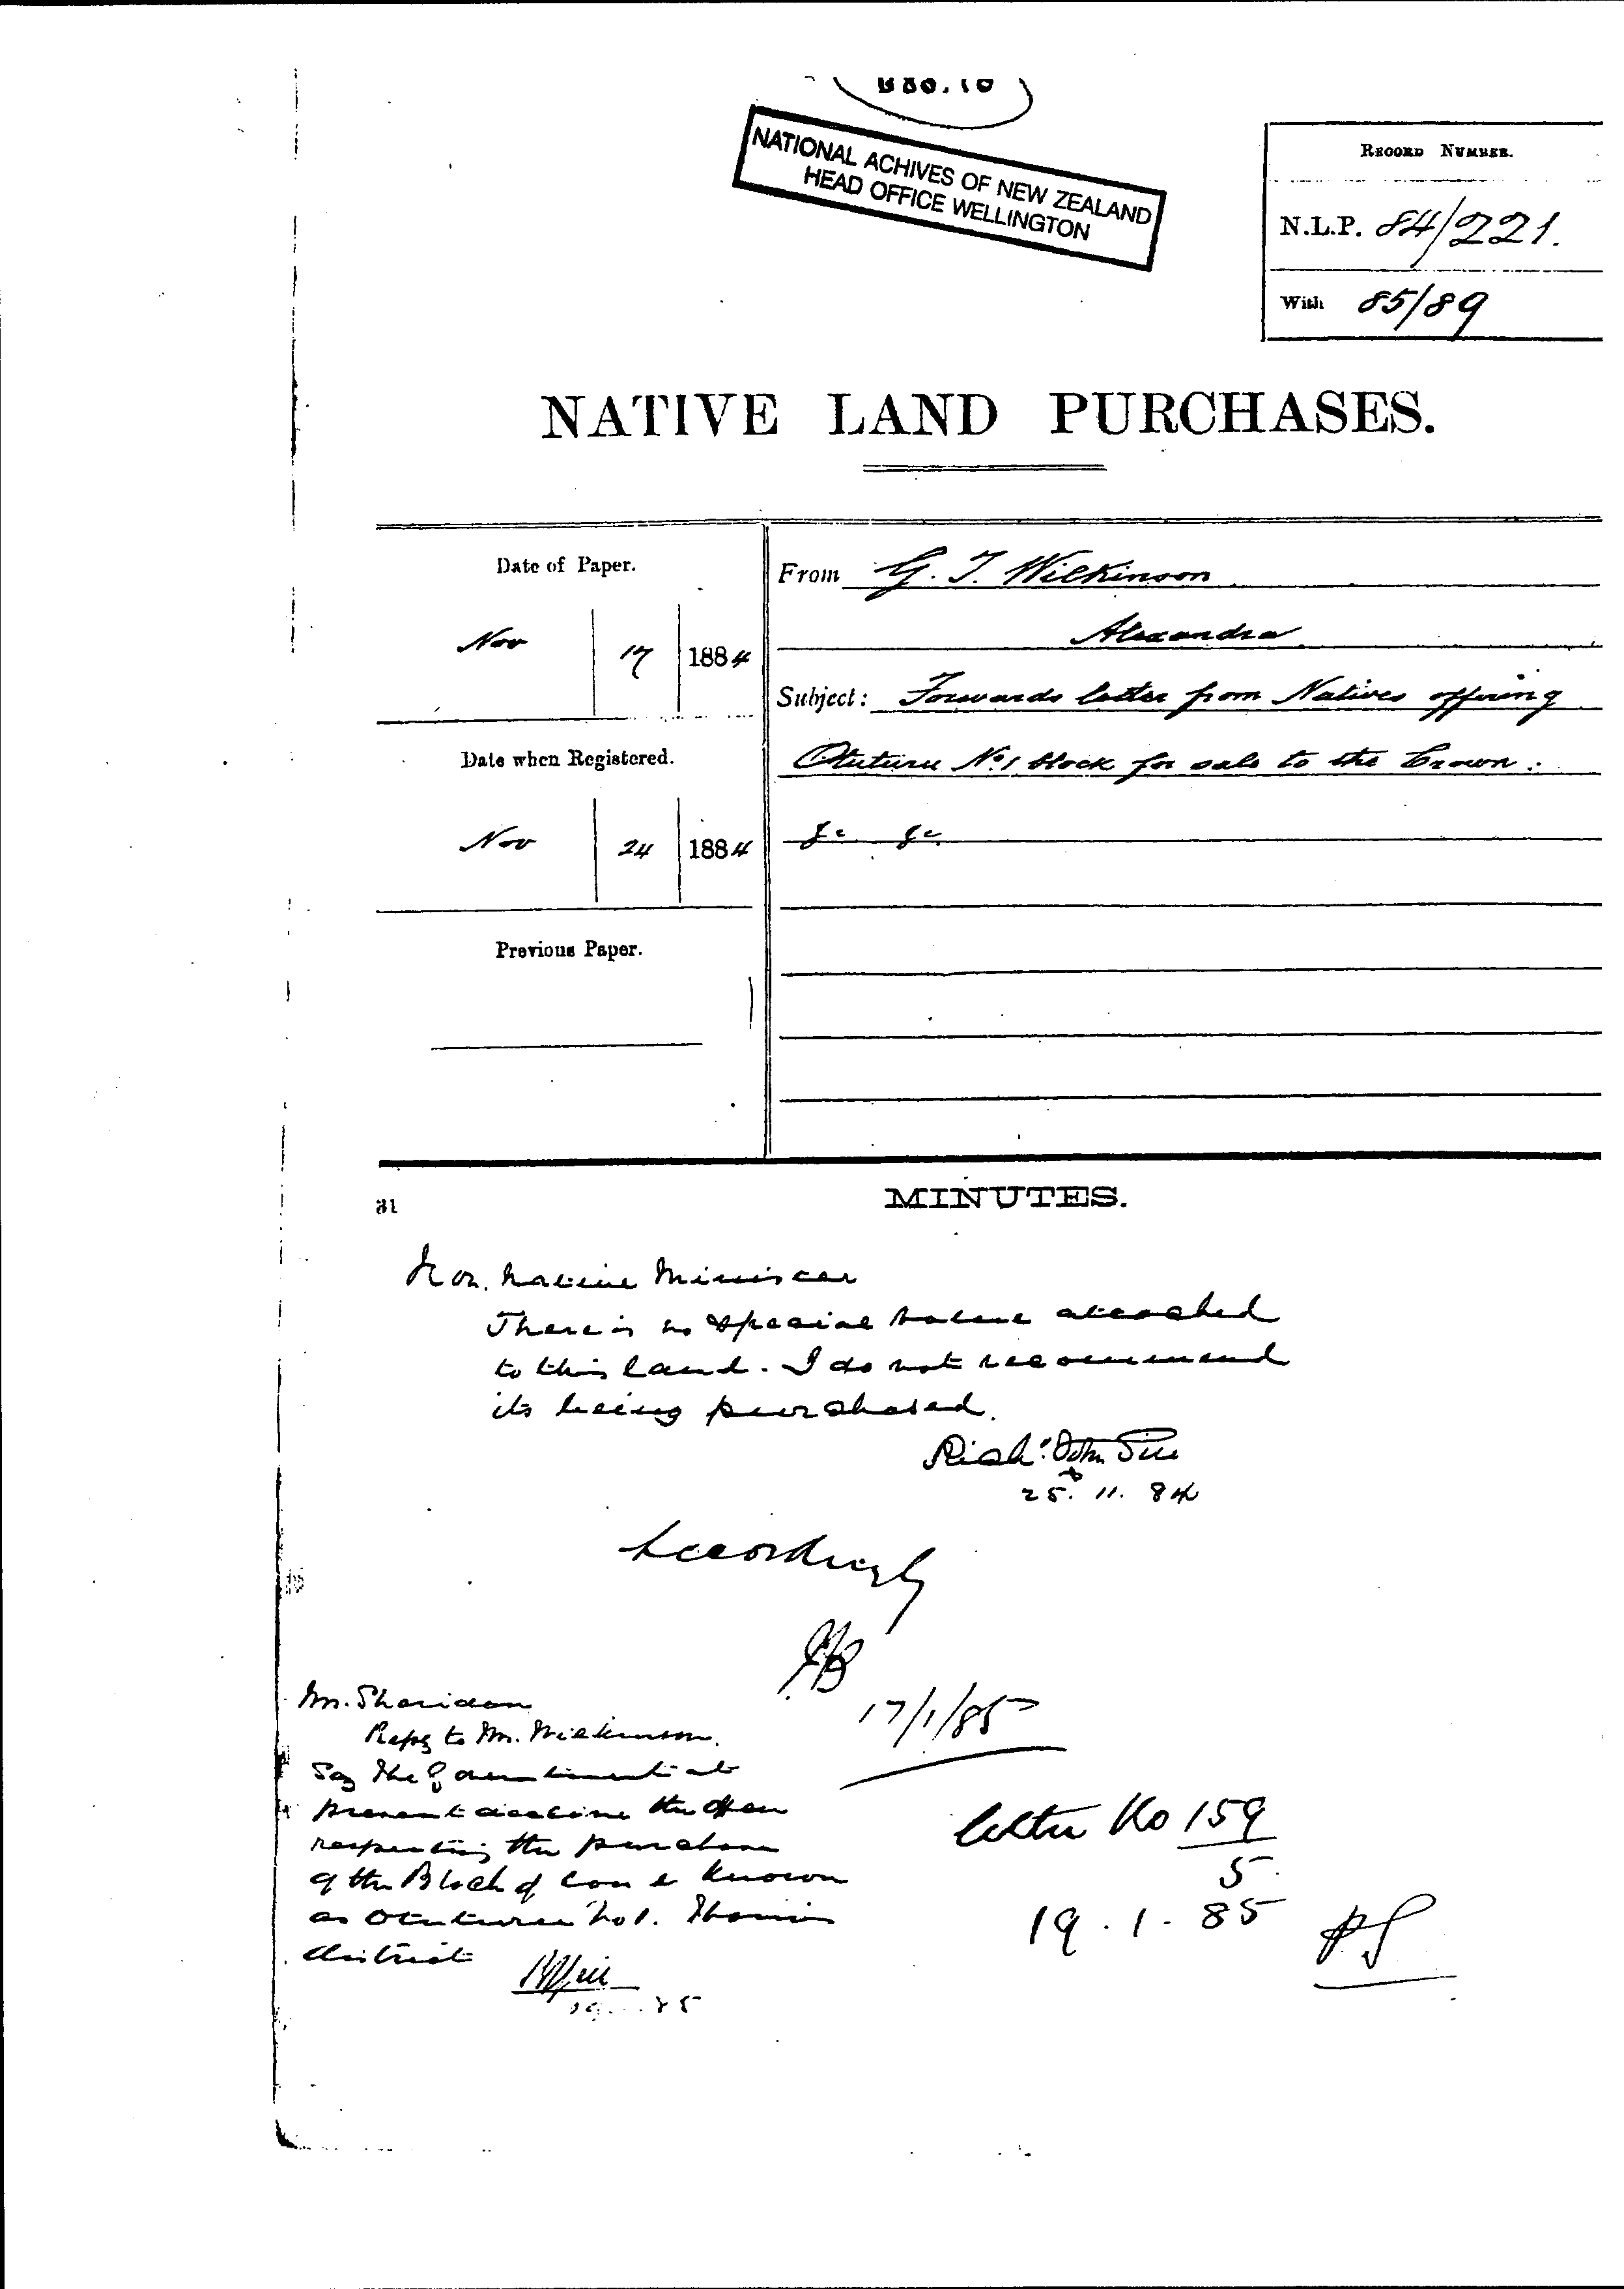 NATIONAL ACHIVES OF NEW ZEALAND
HEAD OFFICE WELLINGTON
RECORD NUMBER.
N.L.P. 84/221.
With 85/89
NATIVE LAND PURCHASES.
Date of Paper.
Nov 17 1884
Date when Registered.
Nov 24 1884
Previous Paper.
From G. T. Wilkinson
Alexandra
Subject: Forwards letter from Natives offering
Otuturu No. 1 block for sale to the Crown.
&c &c
MINUTES.
Hon. Native Minister
There is no special value attached
to this land. I do not recommend
its being purchased.
Richd. John Gill
25. 11. 84
Accordingly
JB
17/1/85
Mr. Sheridan
Reply to Mr. Wilkinson.
Say the Government at
present decline the offer
respecting the purchase
of the Block of land known
as Otuturu No 1. Thames
district
RJGill
85
letter No 159
5
19. 1. 85
PS